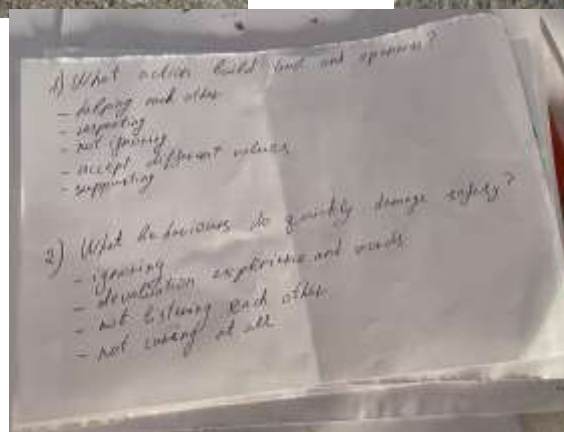 1) What action build trust and openness?
- helping each other
- respecting
- not ignoring
- accept different values
- supporting
2) What behaviours do quickly damage safety?
- ignoring
- devaluation experience and words
- not listening each other
- not caring at all